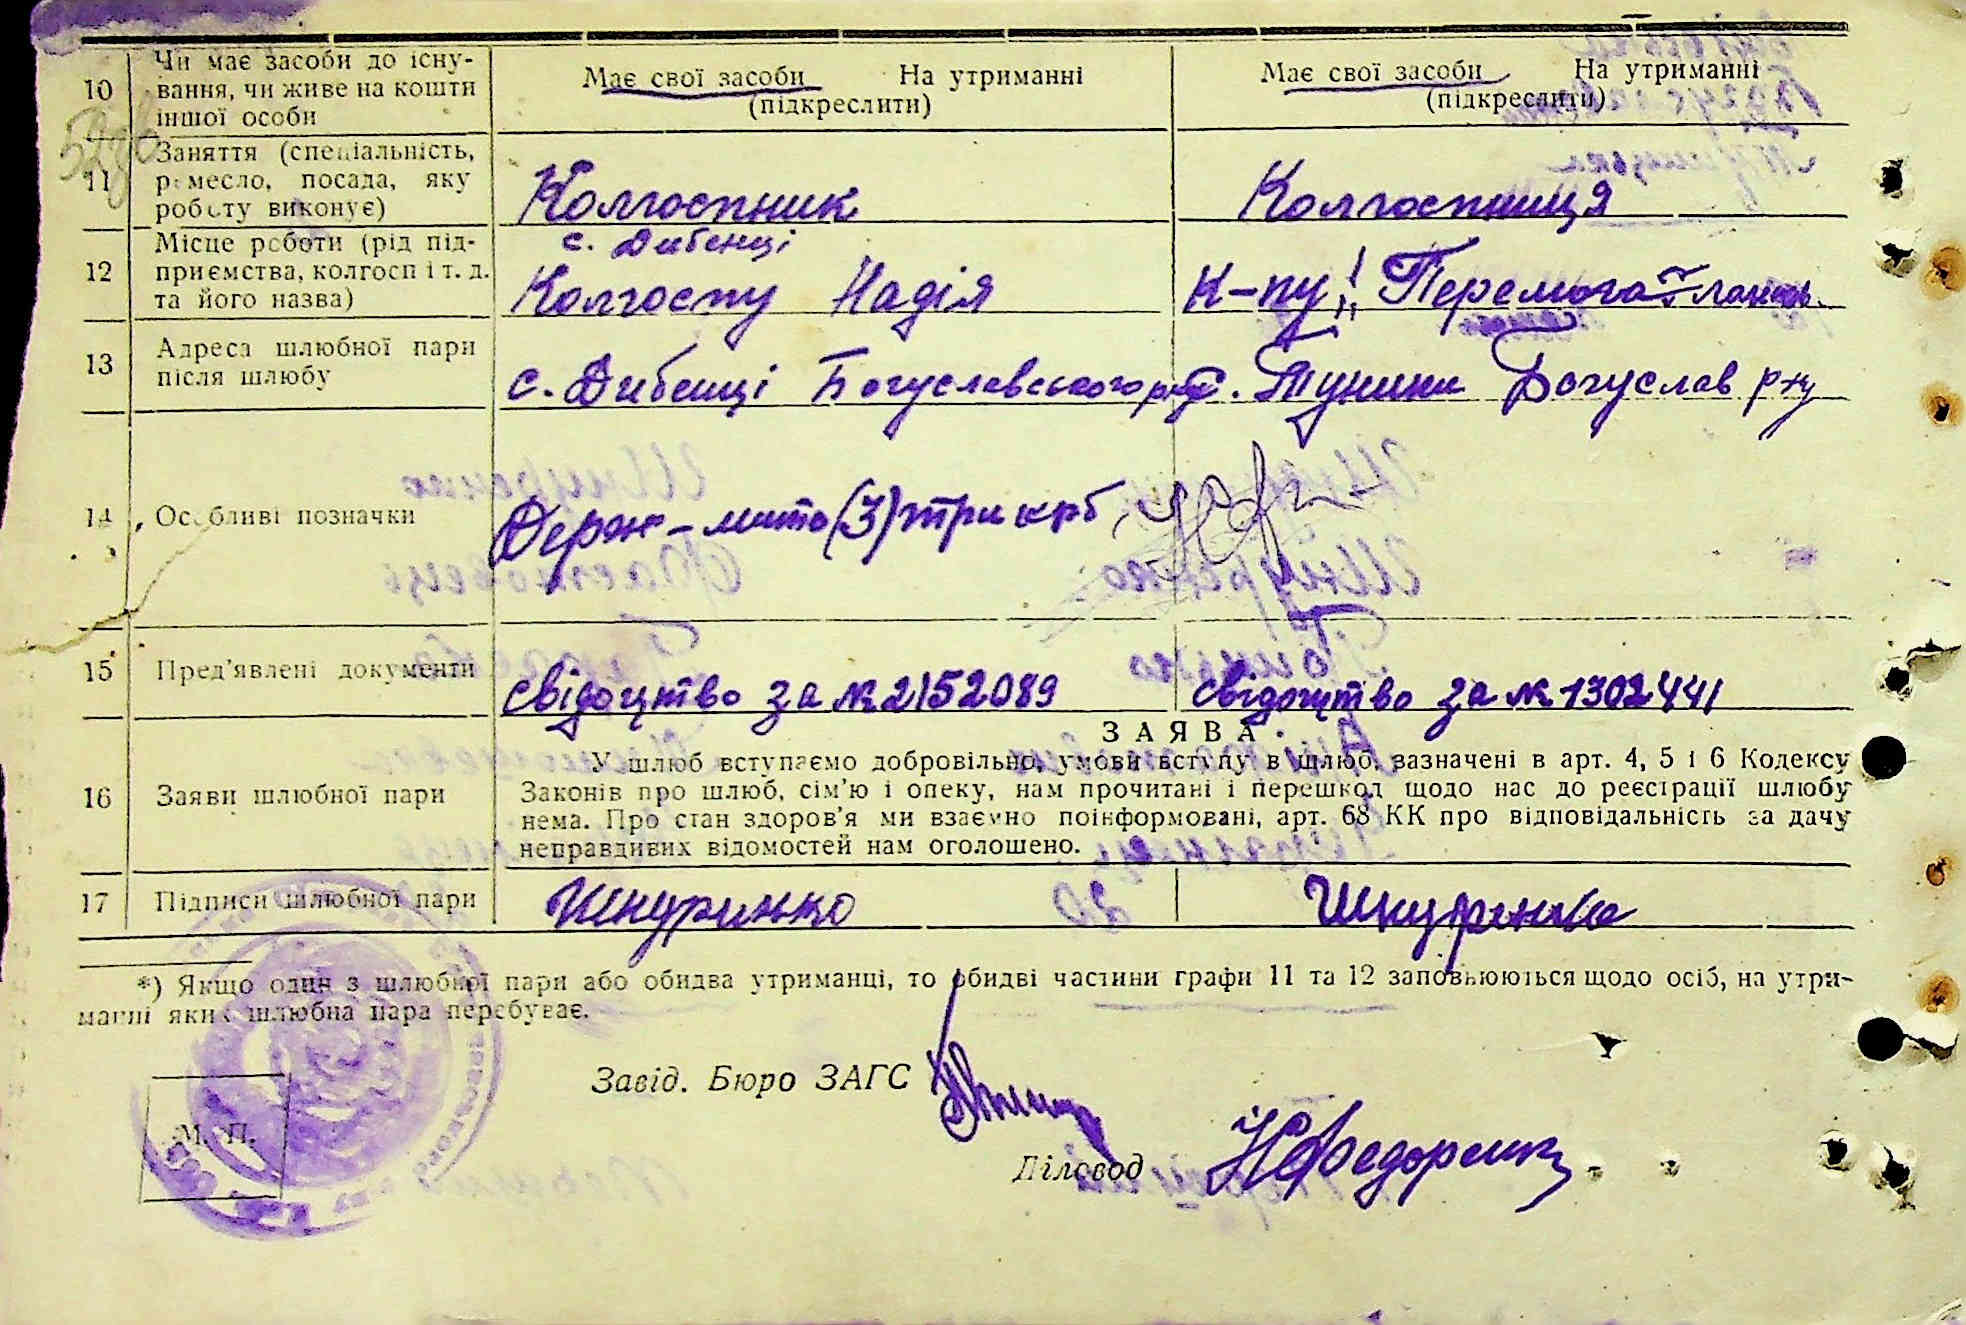 10
Чи має засоби до існу-
вання, чи живе на кошти
іншої особи
Має свої засоби На утриманні
(підкреслити)
Має свої засоби На утриманні
(підкреслити)
11
Заняття (спеціальність,
ремесло, посада, яку
роботу виконує)
Колгоспник
Колгоспниця
12
Місце роботи (рід під-
приємства, колгосп і т. д.
та його назва)
с. Дибенці
Колгоспу Надія
К-пу "Перемога"
13
Адреса шлюбної пари
після шлюбу
с. Дибенці Богуславського р-ну
с. Туники Богуслав р-ну
14
Особливі позначки
Держ-мито (3) три крб.
15
Пред'явлені документи
свідоцтво за № 2152089
свідоцтво за № 1302441
16
Заяви шлюбної пари
ЗАЯВА.
У шлюб вступаємо добровільно, умови вступу в шлюб, зазначені в арт. 4, 5 і 6 Кодексу
Законів про шлюб, сім'ю і опеку, нам прочитані і перешкод щодо нас до реєстрації шлюбу
нема. Про стан здоров'я ми взаємно поінформовані, арт. 68 КК про відповідальність за дачу
неправдивих відомостей нам оголошено.
17
Підписи шлюбної пари
Шнуринко
Шнуренко
*) Якщо один з шлюбної пари або обидва утриманці, то обидві частини графи 11 та 12 заповнюються щодо осіб, на утри-
манні яких шлюбна пара перебуває.
Завід. Бюро ЗАГС
М. П.
Діловод